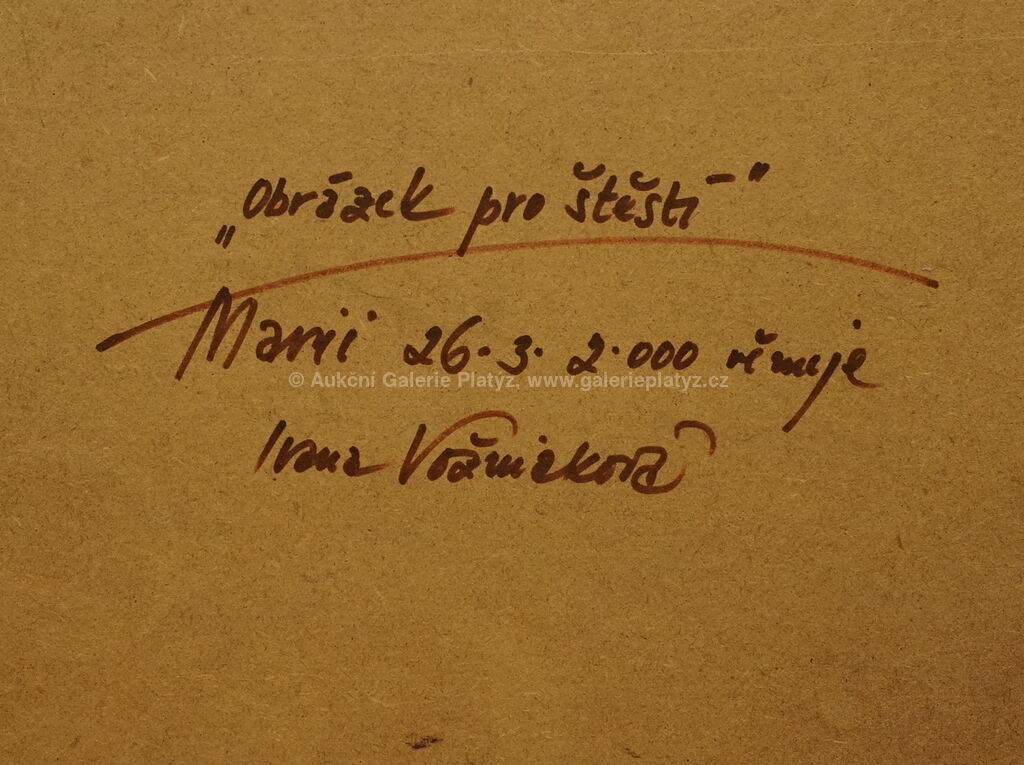 „Obrázek pro štěstí"
Marii 26.3. 2.000 věnuje
© Aukční Galerie Platýz, www.galerieplatyz.cz
Ivana